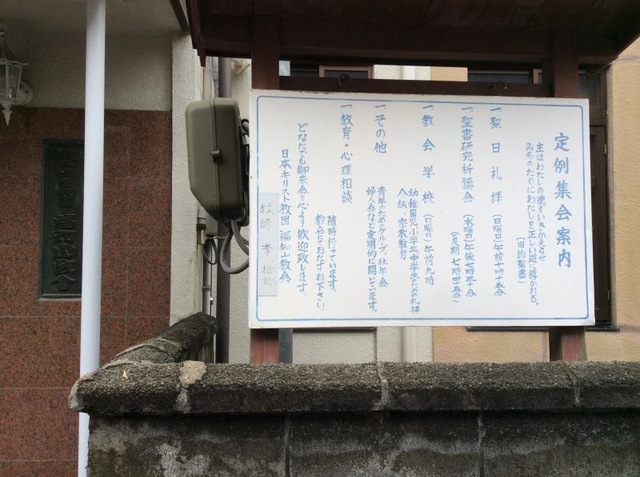 定例集会案内
主はわたしの魂をいきかえらせ
み名のためにわたしを正しい道に導かれる。
(旧約聖書)
一聖日礼拝(日曜日)午前十時十五分
一聖書研究祈祷会(水曜日)午後七時
一教会学校(日曜日)午前九時
幼稚園児小学生中学生のための礼拝
一その他
青年のためのグループ、壮年会
婦人会など定期的に開いています。
一教育・心理相談
随時行っています。
教会におたずね下さい。
どなたでも御来会を心より歓迎致します。
日本キリスト教団福知山教会
牧師